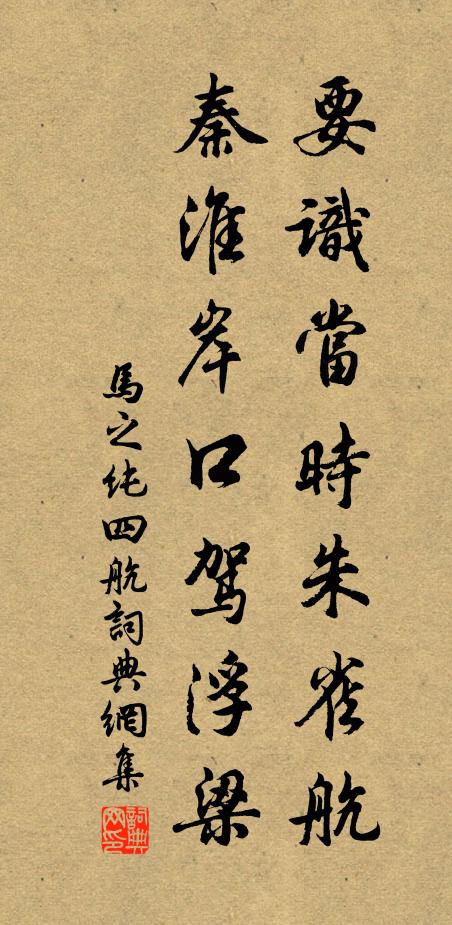 要識當時朱雀航
秦淮岸口駕浮梁
馬之純四航詞典網集
詞典網印